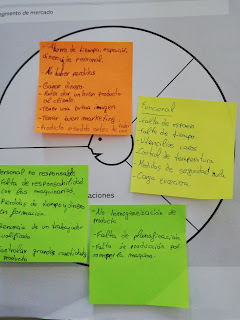 segmento de mercado
- Ahorro de tiempo, espacio,
dinero y de personal.
- No haber perdidas
- Ganar dinero
- Poder dar un buen producto
al cliente.
- Tener una buena imagen
- Tener buen marketing
- Producto estable antes de
Funcional
- Falta de espacio
- Falta de tiempo
- Utensilios caros
- Control de temperatura
- Medidas de seguridad
- Carga excesiva
Personal no responsable
Falta de responsabilidad
con las maquinarias.
Perdidas de tiempo y dinero
en formación.
de un trabajador
cualificado
Controlar grandes cantidades
producto
aciones
- No homogeneización de
producto
- Falta de planificación
- Falta de producción por
romper la maquina.